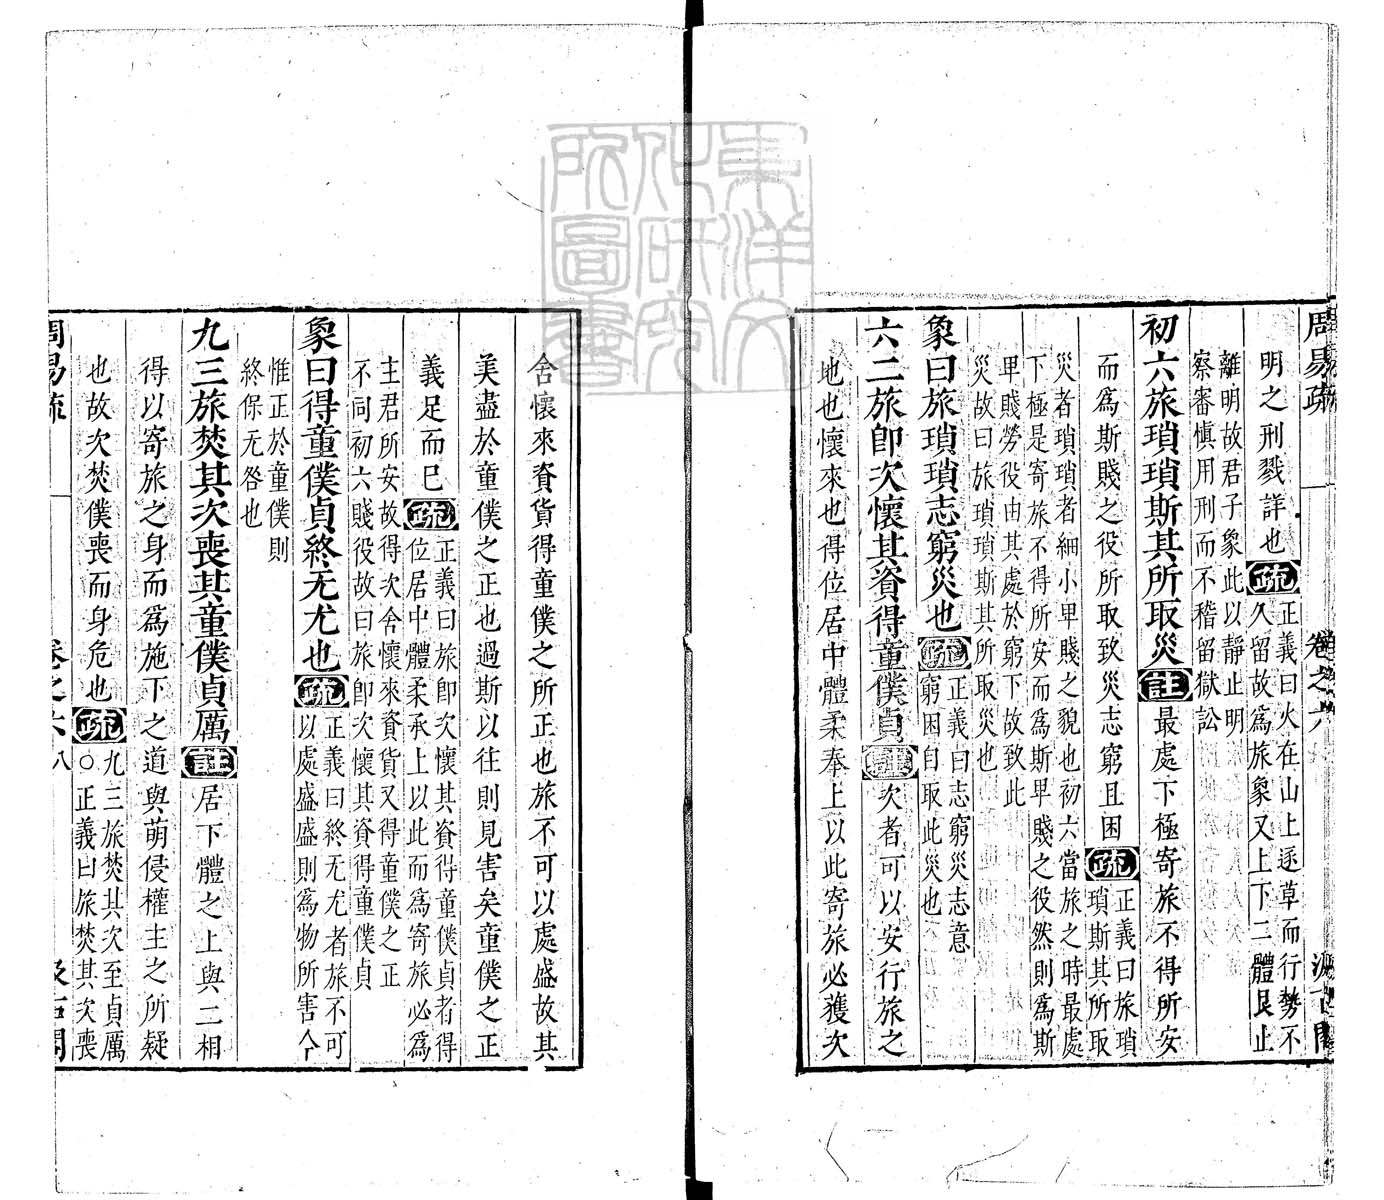 周易疏 卷之六
明之刑戮詳也疏正義曰火在山上逐草而行勢不
久留故爲旅象又上下二體艮止
離明故君子象此以靜止明
察審慎用刑而不稽留獄訟
初六旅瑣瑣斯其所取災註最處下極寄旅不得所安
而爲斯賤之役所取致災志窮且困疏正義曰旅瑣
瑣斯其所取
災者瑣瑣者細小卑賤之貌也初六當旅之時最處
下極是寄旅不得所安而爲斯卑賤之役然則爲斯
卑賤勞役由其處於窮下故致此
災故曰旅瑣瑣斯其所取災也
象曰旅瑣瑣志窮災也疏正義曰志窮災志意
窮困自取此災也
六二旅卽次懷其資得童僕貞註次者可以安行旅之
地也懷來也得位居中體柔奉上以此寄旅必獲次
舍懷來資貨得童僕之所正也旅不可以處盛故其
美盡於童僕之正也過斯以往則見害矣童僕之正
義足而已疏正義曰旅卽次懷其資得童僕貞者得
位居中體柔承上以此而爲寄旅必爲
主君所安故得次舍懷來資貨又得童僕之正
不同初六賤役故曰旅卽次懷其資得童僕貞
象曰得童僕貞終无尤也疏正義曰終无尤者旅不可
以處盛盛則爲物所害今
惟正於童僕則
終保无咎也
九三旅焚其次喪其童僕貞厲註居下體之上與二相
得以寄旅之身而爲施下之道與萌侵權主之所疑
也故次焚僕喪而身危也疏九三旅焚其次至貞厲
○正義曰旅焚其次喪
周易疏 卷之六 八 汲古閣